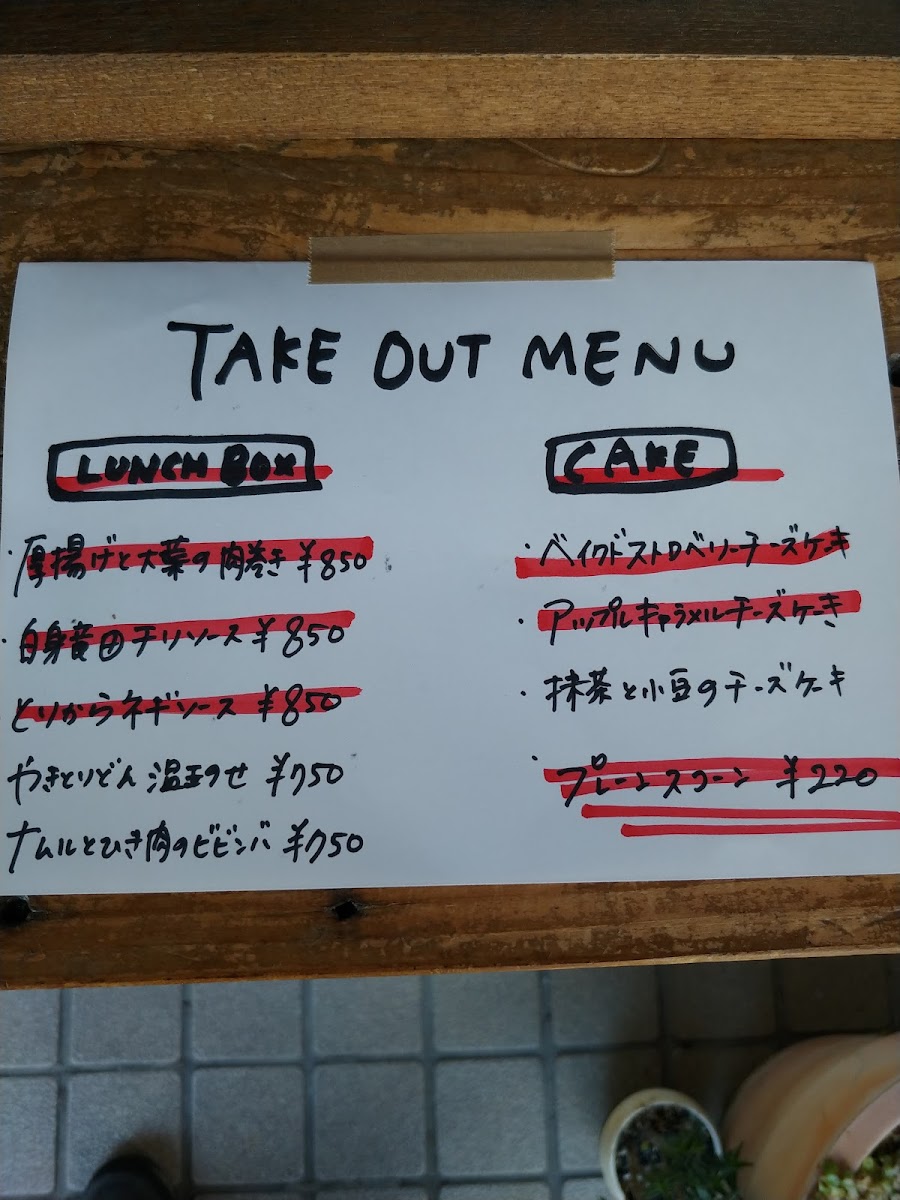 TAKE OUT MENU
LUNCH BOX
・厚揚げと大葉の肉巻き ¥850
・白身黄田チリソース ¥850
とりからネギソース ¥850
やきとりどん 温玉のせ ¥750
ナムルとひき肉のビビンバ ¥750
CAKE
・ベイクドストロベリーチーズケーキ
・アップルキャラメルチーズケーキ
・抹茶と小豆のチーズケーキ
・プレーンスコーン ¥220